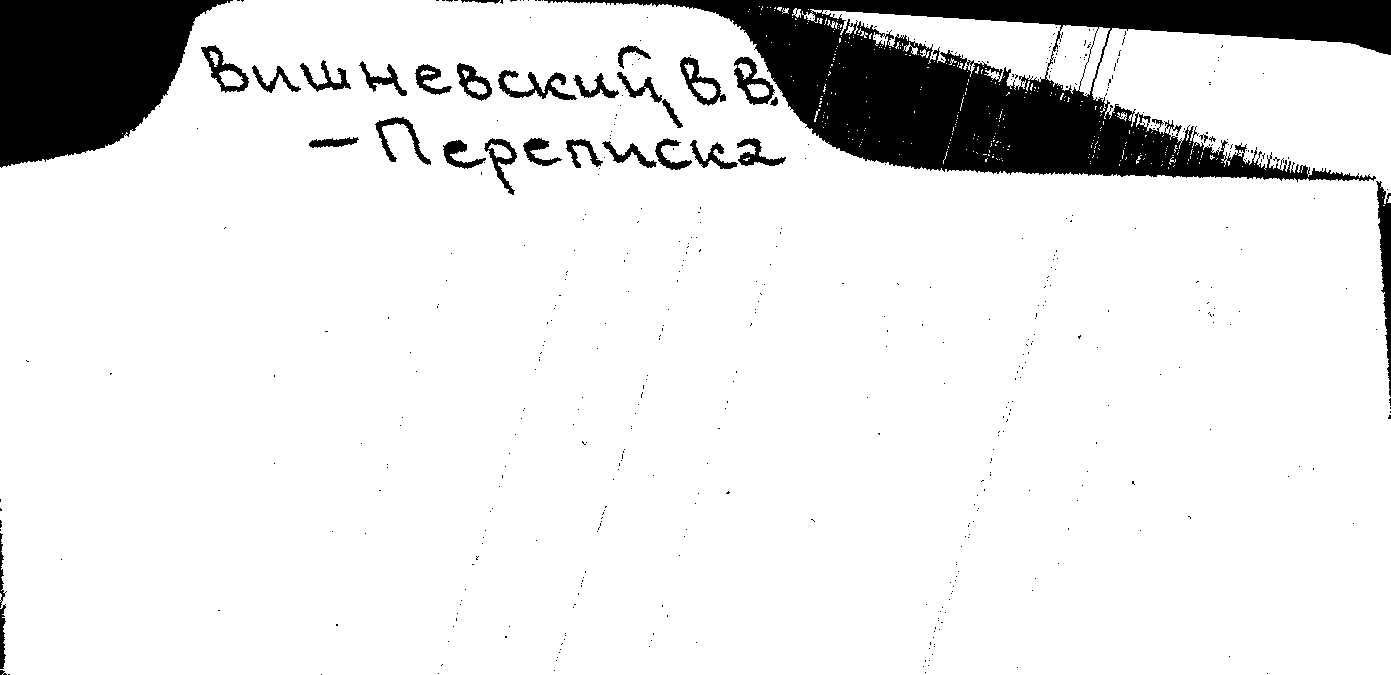 Вишневский, В.В.
– Переписка